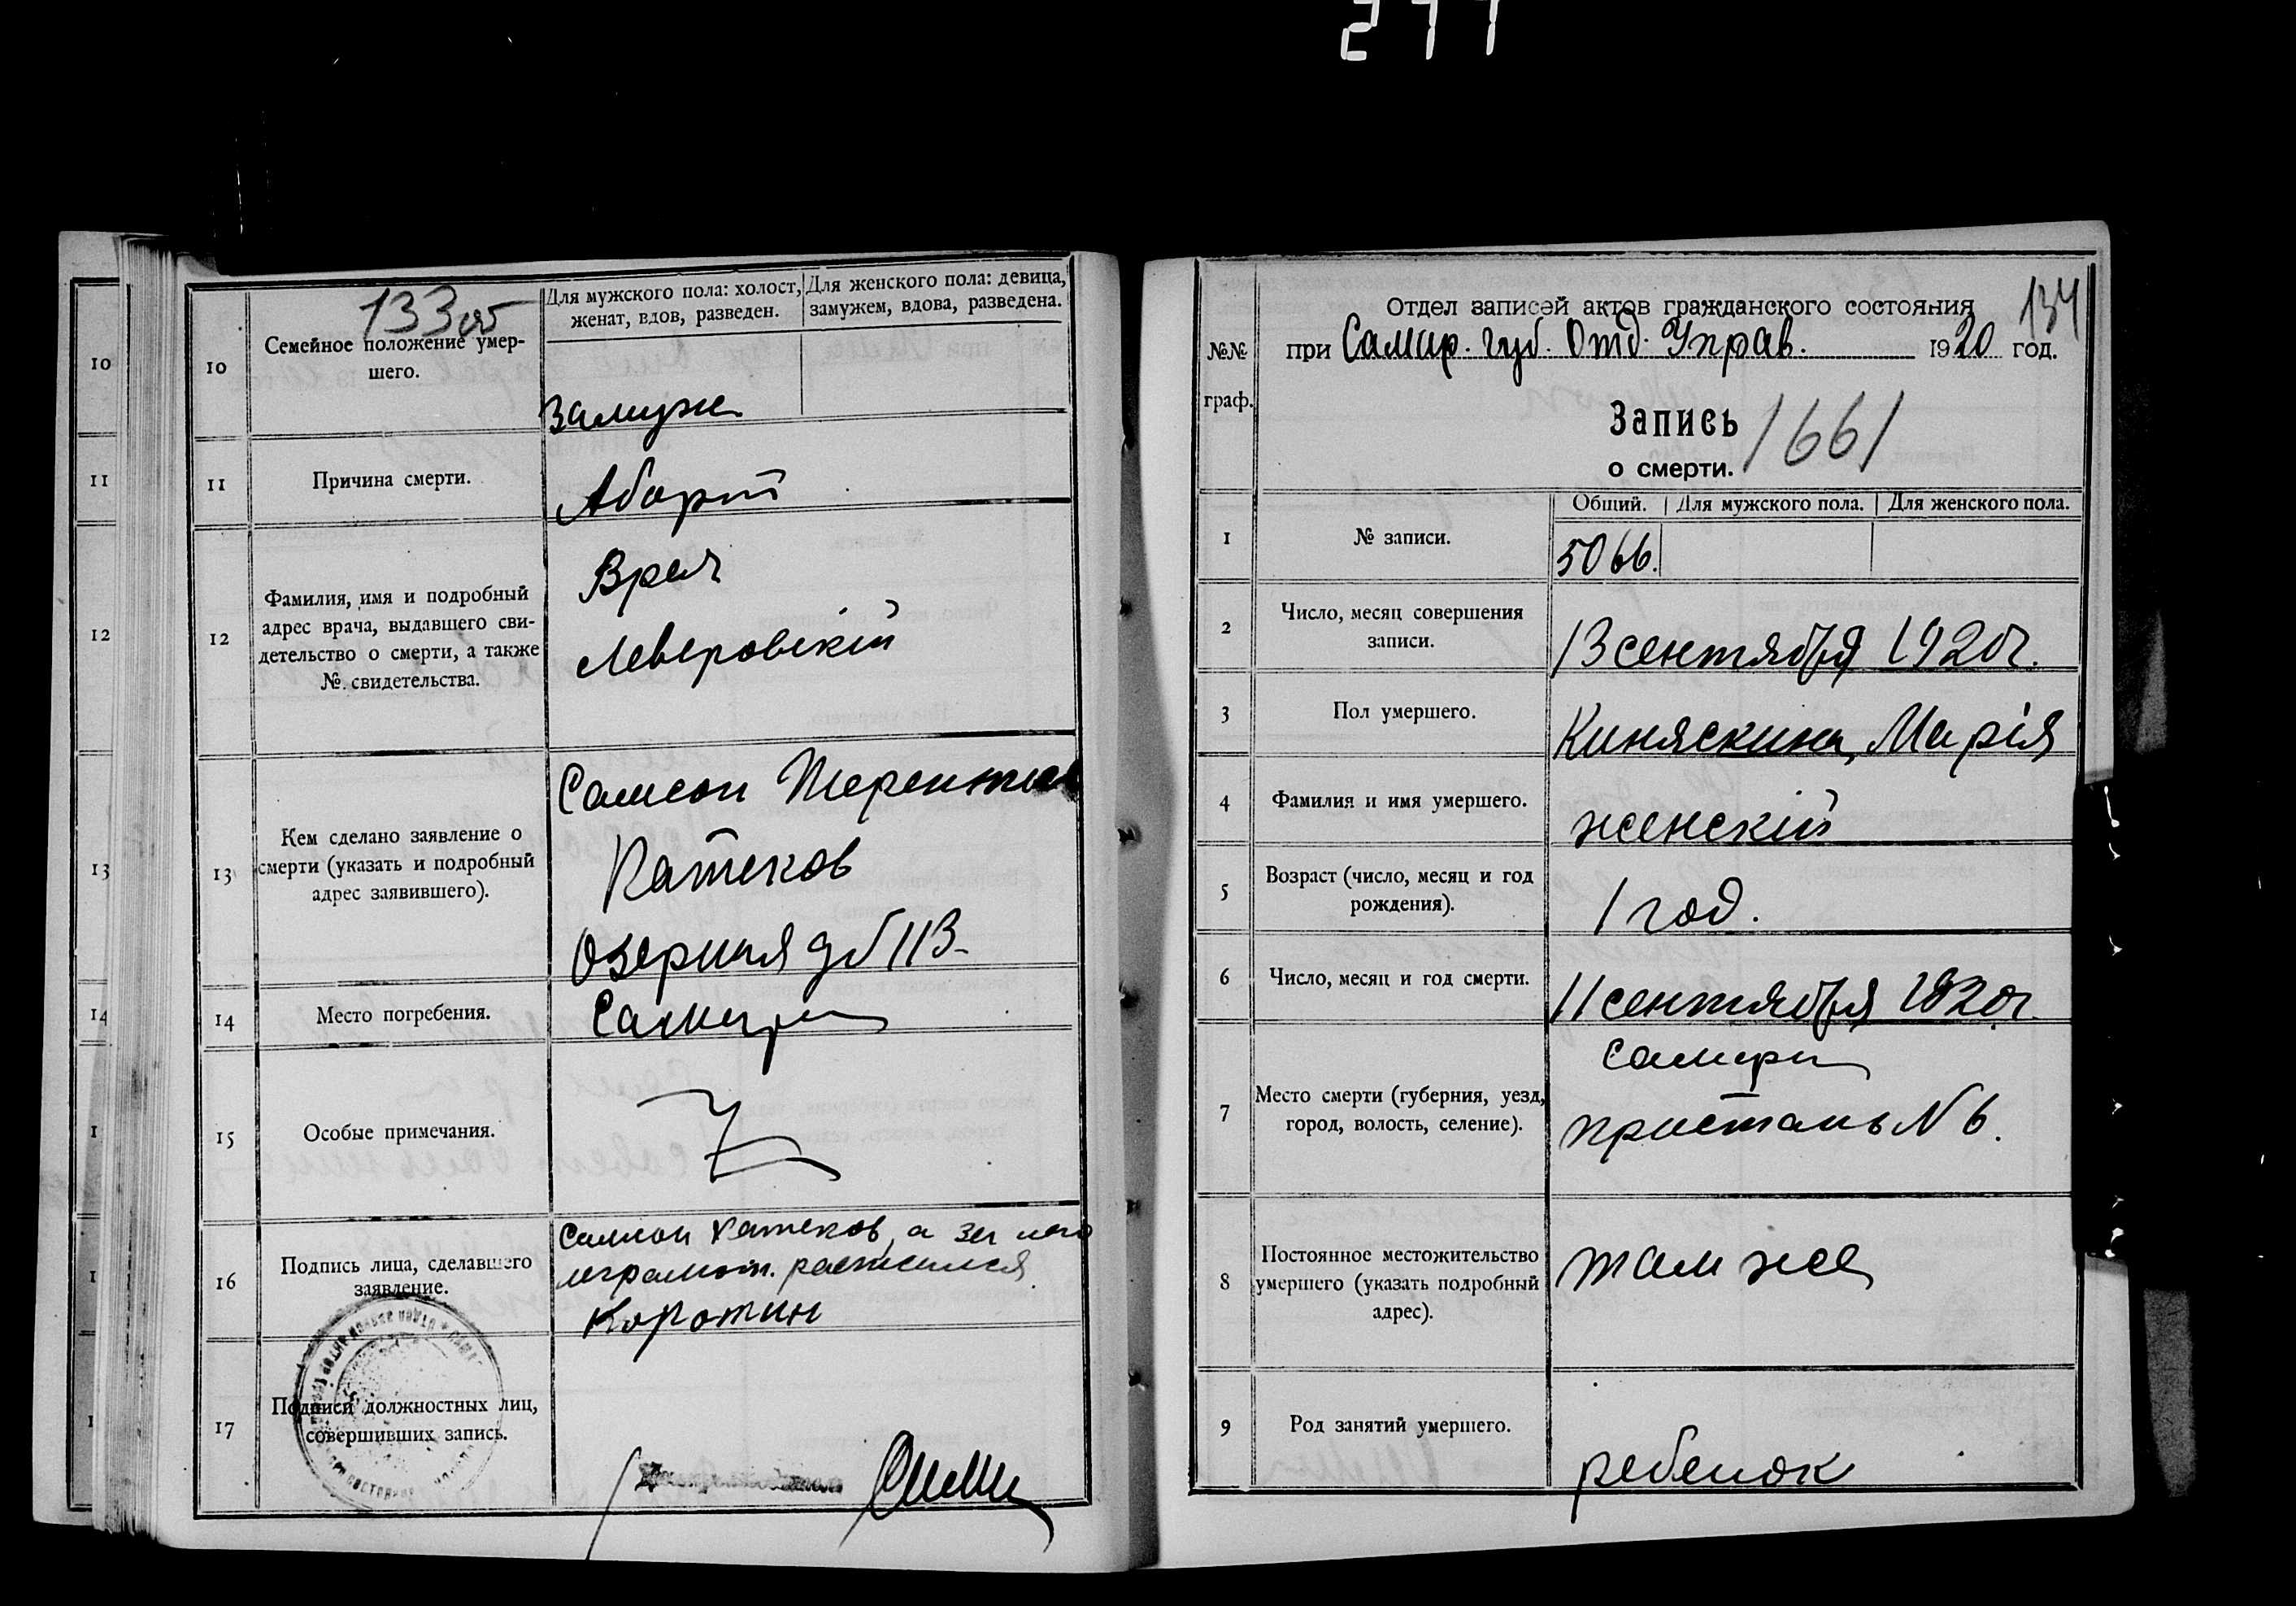 277
10
11
12
13
14
133 об
10
Семейное положение умер-
шего.
Для мужского пола: холост,
женат, вдов, разведен.
Для женского пола: девица,
замужем, вдова, разведена.
Замуж
11
Причина смерти.
Аборт
12
Фамилия, имя и подробный
адрес врача, выдавшего сви-
детельство о смерти, а также
№ свидетельства.
Врач
Леверовскій
13
Кем сделано заявление о
смерти (указать и подробный
адрес заявившего).
Самсон Терентьев
Катеков
Озерная д б 113-
14
Место погребения.
Самара
15
Особые примечания.
16
Подпись лица, сделавшего
заявление.
Самсон Катеков, а за него
неграмот. расписался
Коротин
17
Подписи должностных лиц,
совершивших запись.
134
Отдел записей актов гражданского состояния
при Самар. губ. Отд. Управ. 1920 год.
№№
граф.
Запись
о смерти.
1661
Общий. Для мужского пола. Для женского пола.
1
№ записи.
5066.
2
Число, месяц совершения
записи.
13 сентября 1920г.
3
Пол умершего.
Киняскина, Марія
4
Фамилия и имя умершего.
женскій
5
Возраст (число, месяц и год
рождения).
1 год.
6
Число, месяц и год смерти.
11 сентября 1920г.
7
Место смерти (губерния, уезд,
город, волость, селение).
Самара
пристань N 6.
8
Постоянное местожительство
умершего (указать подробный
адрес).
там же
9
Род занятий умершего.
ребенок